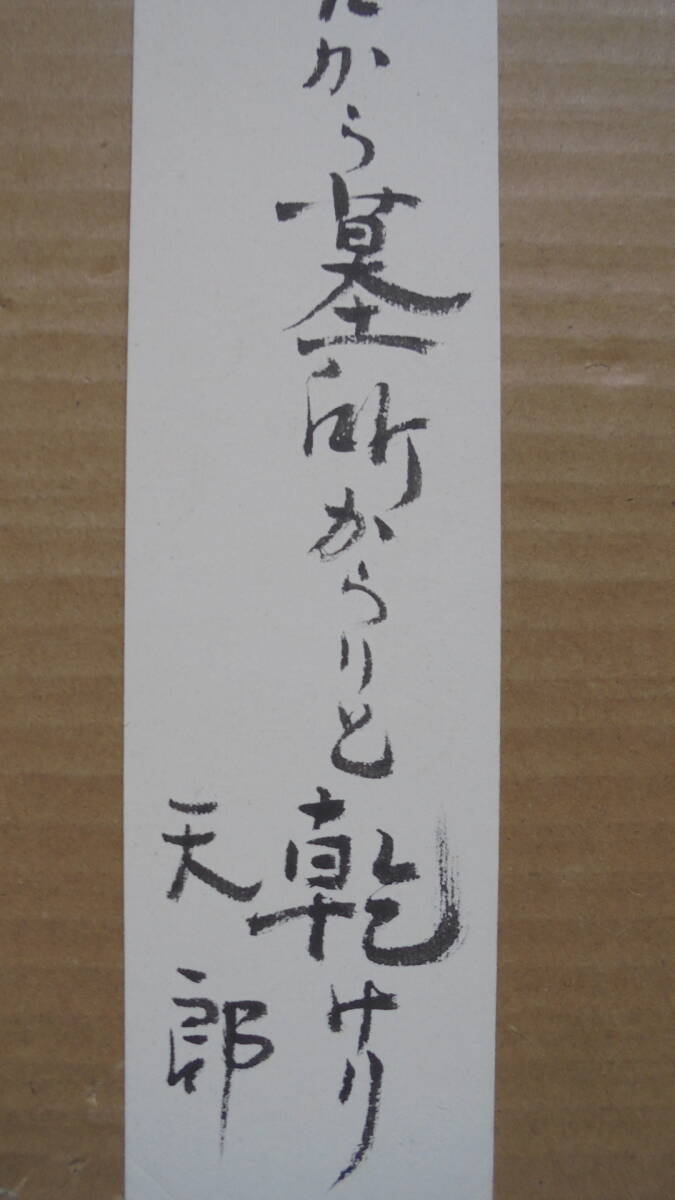 から墓所からりと乾けり
天郎